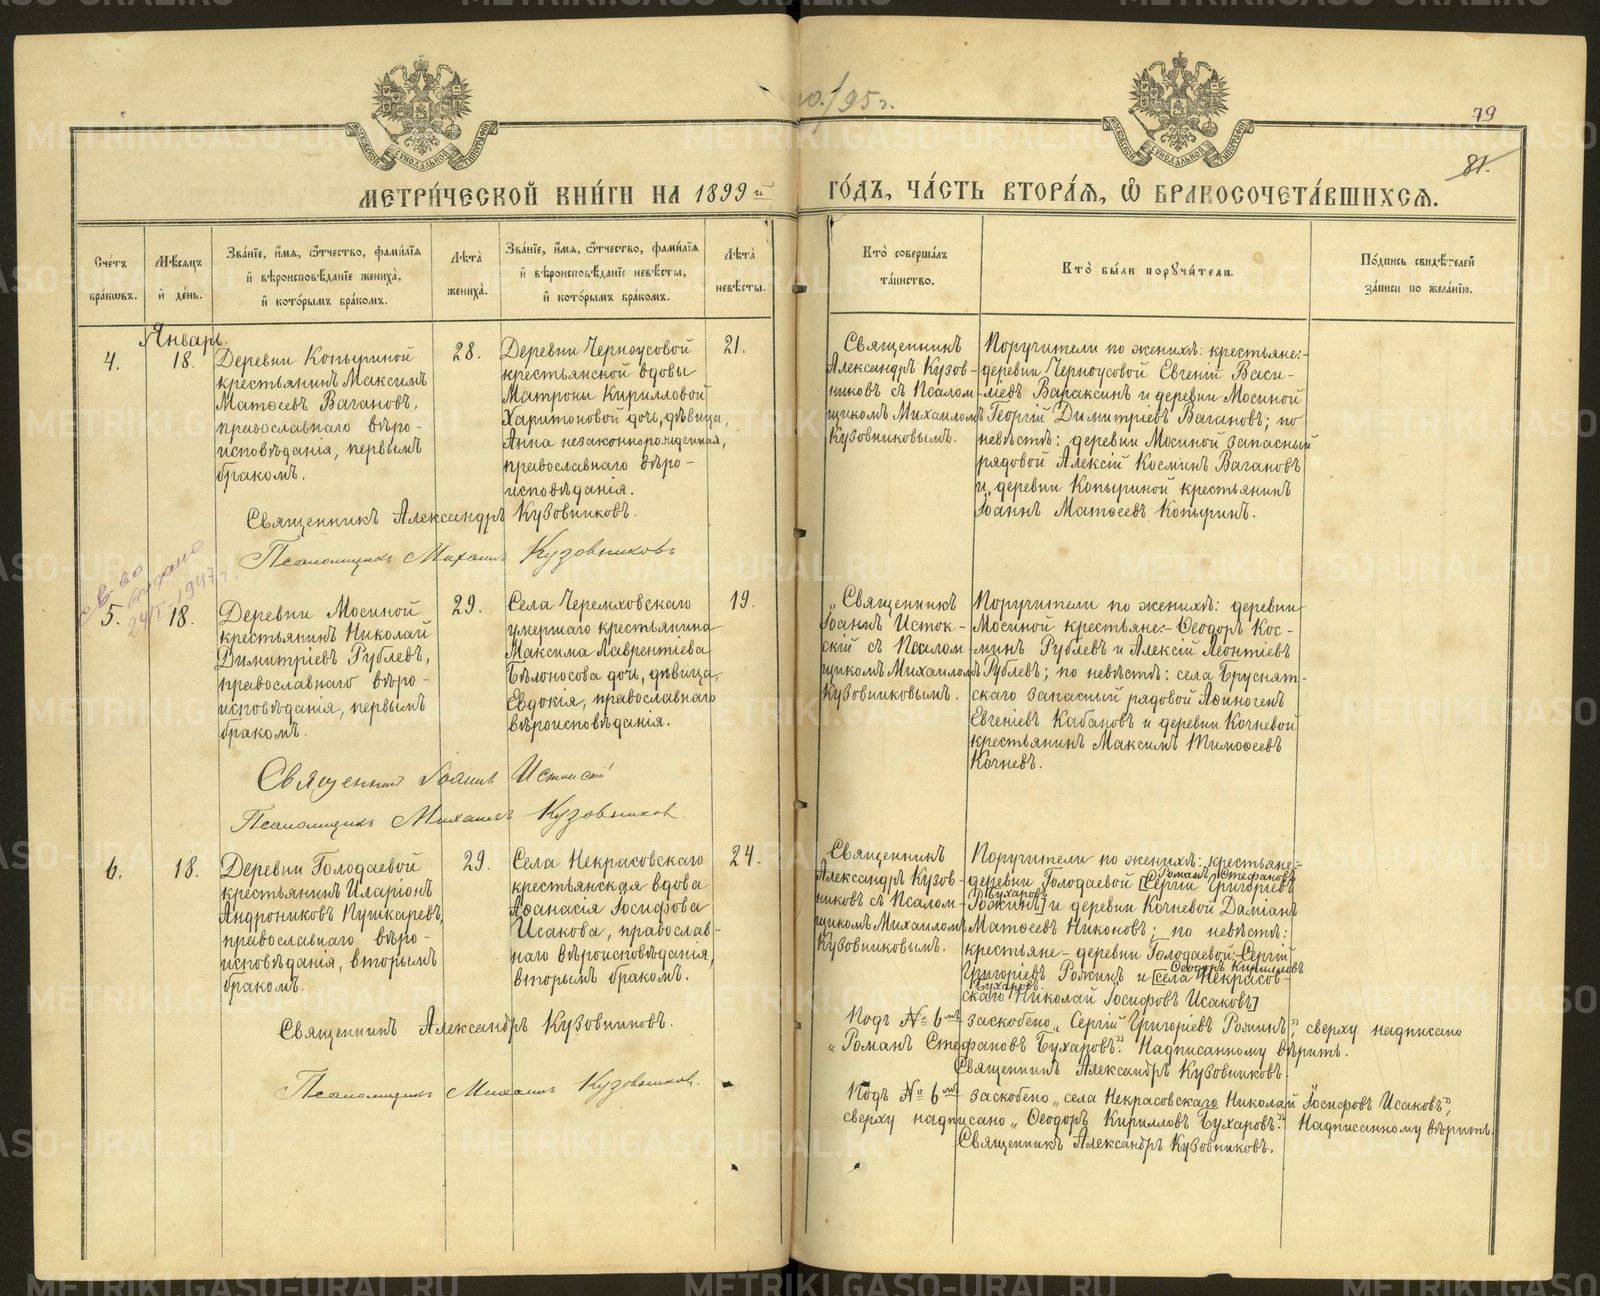 79
81.
МЕТРИ́ЧЕСКОЙ КНИ́ГИ НА 1899й ГО́ДЪ, ЧА́СТЬ ВТОРА́Ѧ, Ѽ БРАКОСОЧЕТА́ВШИХСѦ.
Сче́тъ бра́ковъ.
Мѣ́сѧцъ и҆ де́нь.
Зва́нїе, и҆́мѧ, ѻ҆́тчество, фами́лїѧ
и҆ вѣроисповѣ́данїе жениха̀,
и҆ кото́рымъ бра́комъ.
Лѣ́та жениха̀.
Зва́нїе, и҆́мѧ, ѻ҆́тчество, фами́лїѧ
и҆ вѣроисповѣ́данїе невѣ́сты,
и҆ кото́рымъ бра́комъ.
Лѣ́та невѣ́сты.
Кто̀ соверша́лъ
та́инство.
Кто̀ бы́ли порꙋчи́тели.
По́дпись свидѣ́телей
за́писи по жела́нїю.
Январь.
4.
18.
Деревни Копыриной
крестьянинъ Максимъ
Матѳеевъ Вагановъ,
православнаго вѣро-
исповѣданія, первымъ
бракомъ.
28.
Деревни Черноусовой
крестьянской вдовы
Матроны Кирилловой
Харитоновой дочь, дѣвица,
Анна незаконнорожденная,
православнаго вѣро-
исповѣданія.
21.
Священникъ
Александръ Кузов-
никовъ съ Псалом-
щикомъ Михаиломъ
Кузовниковымъ.
Поручители по женихѣ: крестьяне:-
деревни Черноусовой Евгеній Васи-
ліевъ Вараксинъ и деревни Мосиной
Георгій Димитріевъ Вагановъ; по
невѣстѣ: деревни Мосиной запасный
рядовой Алексій Косминъ Вагановъ
и деревни Копыриной крестьянинъ
Іоаннъ Матѳеевъ Копыринъ.
Священникъ Александръ Кузовниковъ.
Псаломщикъ Михаилъ Кузовниковъ
св-во
выдано
24/I 1947 г.
5.
18.
Деревни Мосиной
крестьянинъ Николай
Димитріевъ Рублевъ,
православнаго вѣро-
исповѣданія, первымъ
бракомъ.
29.
Села Черемховскаго
умершаго крестьянина
Максима Лаврентіева
Бѣлоносова дочь, дѣвица,
Евдокія, православнаго
вѣроисповѣданія.
19.
Священникъ
Іоаннъ Исток-
скій съ Псалом-
щикомъ Михаиломъ
Кузовниковымъ.
Поручители по женихѣ: деревни
Мосиной крестьяне:- Ѳеодоръ Кос-
минъ Рублевъ и Алексій Леонтіевъ
Рублевъ; по невѣстѣ: села Бруснят-
скаго запасный рядовой Аѳиногенъ
Евгеніевъ Кабановъ и деревни Кочневой
крестьянинъ Максимъ Тимоѳеевъ
Кочневъ.
Священникъ Іоаннъ Истокскій
Псаломщикъ Михаилъ Кузовниковъ.
6.
18.
Деревни Голодаевой
крестьянинъ Иларіонъ
Андрониковъ Пушкаревъ,
православнаго вѣро-
исповѣданія, вторымъ
бракомъ.
29.
Села Некрасовскаго
крестьянская вдова
Аѳанасія Іосифова
Исакова, православ-
наго вѣроисповѣданія,
вторымъ бракомъ.
24.
Священникъ
Александръ Кузов-
никовъ съ Псалом-
щикомъ Михаиломъ
Кузовниковымъ.
Поручители по женихѣ: крестьяне:-
Романъ Стефановъ
деревни Голодаевой [Сергій Григоріевъ
Бухаровъ
Рожинъ] и деревни Кочневой Даміанъ
Матѳеевъ Никоновъ; по невѣстѣ:
крестьяне- деревни Голодаевой: Сергій
Ѳеодоръ Кирилловъ
Григоріевъ Рожинъ и [села Некрасов-
Бухаровъ.
скаго Николай Іосифовъ Исаковъ]
Священникъ Александръ Кузовниковъ.
Псаломщикъ Михаилъ Кузовниковъ.
Подъ № 6мъ заскоблено „Сергій Григоріевъ Рожинъ", сверху надписано
„Романъ Стефановъ Бухаровъ". Надписанному вѣрить.
Священникъ Александръ Кузовниковъ.
Подъ № 6мъ заскоблено „села Некрасовскаго Николай Іосифовъ Исаковъ",
сверху надписано „Ѳеодоръ Кирилловъ Бухаровъ". Надписанному вѣрить.
Священникъ Александръ Кузовниковъ.
METRIKI.GASO-URAL.RU